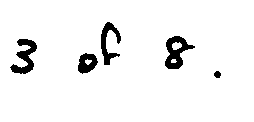 3 of 8.